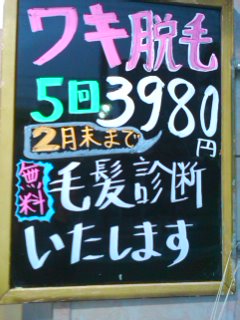 ワキ脱毛
5回3980円
2月末まで
無料毛髪診断
いたします